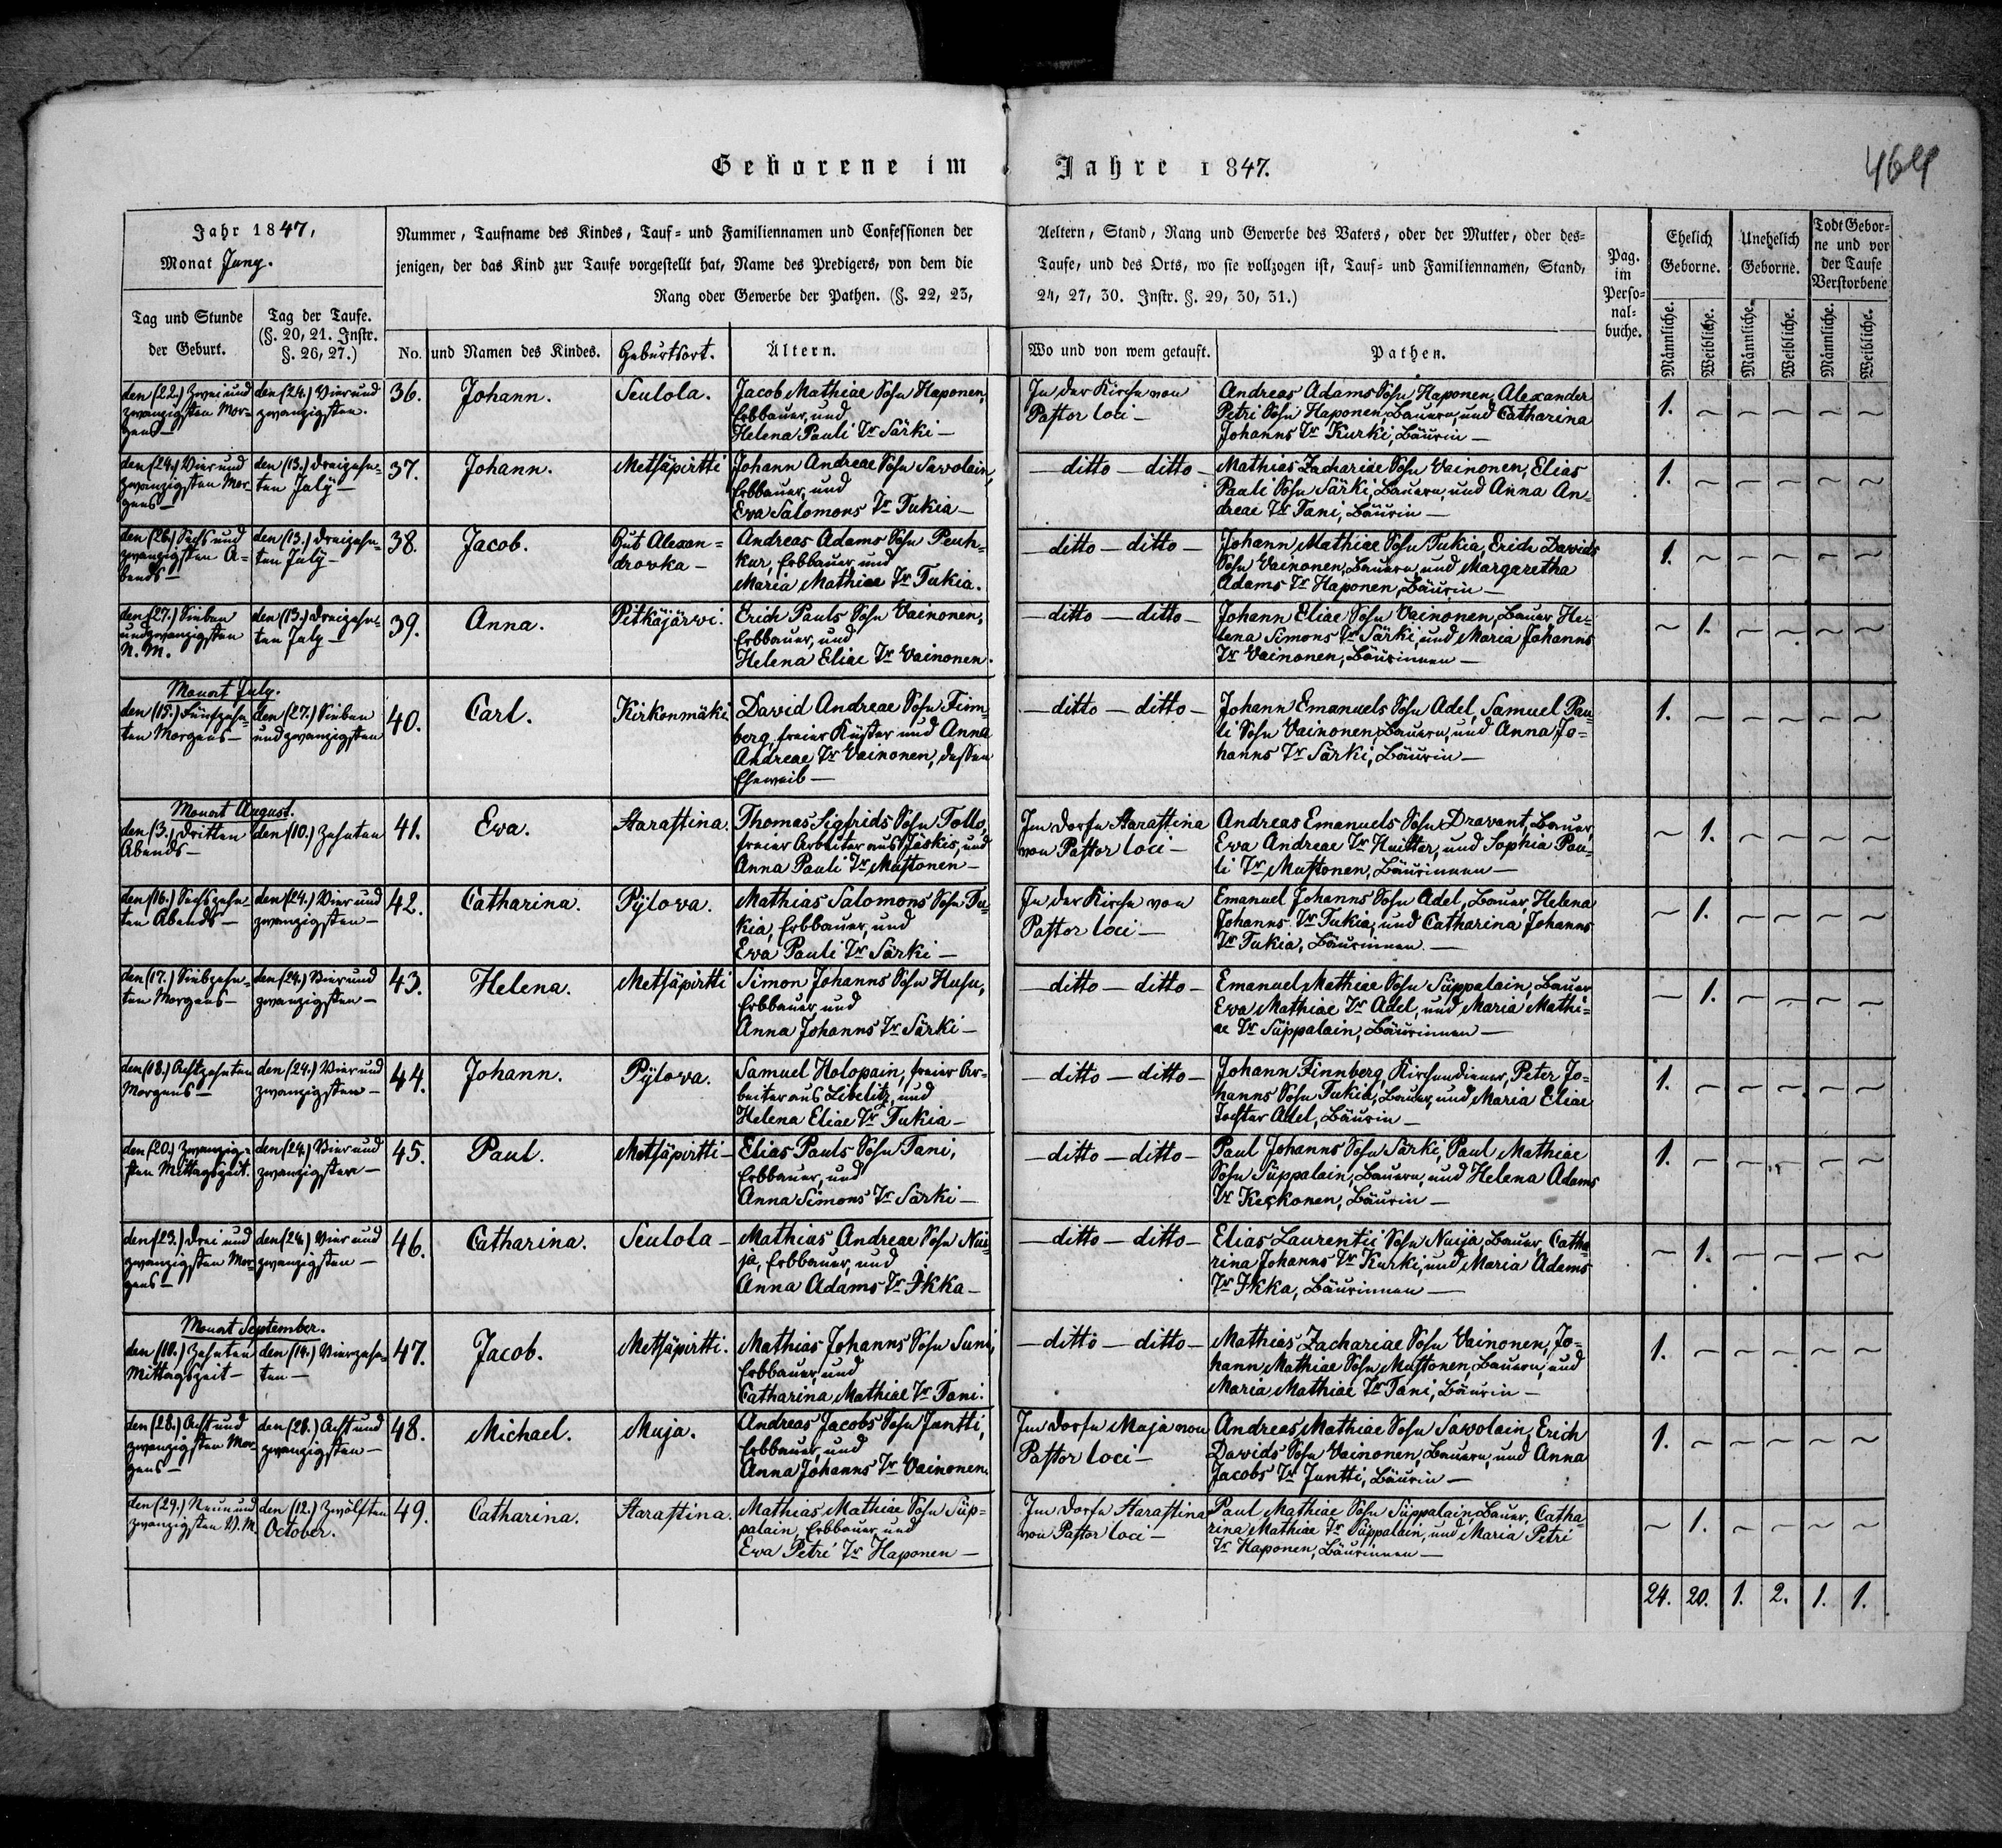 Geborene im Jahre 1847.
464
Jahr 1847,
Monat Juny.
Nummer, Taufname des Kindes, Tauf- und Familiennamen und Confessionen der Aeltern, Stand, Rang und Gewerbe des Vaters, oder der Mutter, oder des-
jenigen, der das Kind zur Taufe vorgestellt hat, Name des Predigers, von dem die Taufe, und des Orts, wo sie vollzogen ist, Tauf- und Familiennamen, Stand,
Rang oder Gewerbe der Pathen. (§. 22, 23, 24, 27, 30. Instr. §. 29, 30, 31.)
Pag.
im
Perso-
nal-
buche.
Ehelich
Geborne.
Unehelich
Geborne.
Todt Gebor-
ne und vor
der Taufe
Verstorbene
Tag und Stunde
der Geburt.
Tag der Taufe.
(§. 20, 21. Instr.
§. 26, 27.)
No. und Namen des Kindes. Geburtsort. Ältern. Wo und von wem getauft. Pathen.
Männliche. Weibliche. Männliche. Weibliche. Männliche. Weibliche.
den (22.) Zwei und
zwanzigsten Mor-
gens —
den (24.) Vier und
zwanzigsten.
36. Johann. Seulola.
Jacob Mathiae Sohn Haponen,
Erbbauer, und
Helena Pauli Tr Särki —
In der Kirche von
Pastor loci —
Andreas Adams Sohn Haponen, Alexander
Petri Sohn Haponen, Bauern, und Catharina
Johanns Tr Kurki, Bäurin —
1. ~ ~ ~ ~ ~
den (24.) Vier und
zwanzigsten Mor-
gens —
den (13.) Dreizehn-
ten July —
37. Johann. Metsäpirtti
Johann Andreae Sohn Savolain,
Erbbauer, und
Eva Salomons Tr Tukia —
— ditto — ditto —
Mathias Zachariae Sohn Vainonen, Elias
Pauli Sohn Särki, Bauern, und Anna An-
dreae Tr Tani, Bäurin —
1. ~ ~ ~ ~ ~
den (26.) Sechs und
zwanzigsten A-
bends —
den (13.) Dreizehn-
ten July —
38. Jacob.
Gut Alexan-
drovka —
Andreas Adams Sohn Peuh-
kur, Erbbauer, und
Maria Mathiae Tr Tukia.
— ditto — ditto —
Johann Mathiae Sohn Tukia, Erich Davids
Sohn Vainonen, Bauern, und Margaretha
Adams Tr Haponen, Bäurin —
1. ~ ~ ~ ~ ~
den (27.) Sieben
und zwanzigsten
N. M.
den (13.) Dreizehn-
ten July —
39. Anna. Pitkäjärwi.
Erich Pauls Sohn Vainonen,
Erbbauer, und
Helena Eliae Tr Vainonen.
— ditto — ditto —
Johann Eliae Sohn Vainonen, Bauer, He-
lena Simons Tr Särki, und Maria Johanns
Tr Vainonen, Bäurinnen —
~ 1. ~ ~ ~ ~
Monat July.
den (15.) Fünfzehn-
ten Morgens —
den (27.) Sieben
und zwanzigsten
40. Carl. Kirkonmäki
David Andreae Sohn Finn-
berg, freier Küster und Anna
Andreae Tr Vainonen, dessen
Eheweib —
— ditto — ditto —
Johann Emanuels Sohn Adel, Samuel Pau-
li Sohn Vainonen, Bauern, und Anna Jo-
hanns Tr Särki, Bäurin —
1. ~ ~ ~ ~ ~
Monat August.
den (3.) Dritten
Abends —
den (10.) Zehnten
41. Ewa. Starastina.
Thomas Sigfrids Sohn Tollo,
freier Arbeiter aus Jäskis, und
Anna Pauli Tr Mustonen —
Im Dorfe Starastina
von Pastor loci —
Andreas Emanuels Sohn Dravant, Bauer,
Eva Andreae Tr Kuittar, und Sophia Pau-
li Tr Mustonen, Bäurinnen —
~ 1. ~ ~ ~ ~
den (16.) Sechszehn-
ten Abends —
den (24.) Vier und
zwanzigsten —
42. Catharina. Pÿlova.
Mathias Salomons Sohn Tu-
kia, Erbbauer, und
Ewa Pauli Tr Särki —
In der Kirche von
Pastor loci —
Emanuel Johanns Sohn Adel, Bauer, Helena
Johanns Tr Tukia, und Catharina Johanns
Tr Tukia, Bäurinnen. —
~ 1. ~ ~ ~ ~
den (17.) Siebzehn-
ten Morgens —
den (24.) Vier und
zwanzigsten —
43. Helena. Metsäpirtti
Simon Johanns Sohn Husu,
Erbbauer, und
Anna Johanns Tr Särki —
— ditto — ditto —
Emanuel Mathiae Sohn Süppalain, Bauer
Eva Mathiae Tr Adel, und Maria Mathi-
ae Tr Süppalain, Bäurinnen —
~ 1. ~ ~ ~ ~
den (18.) Achtzehnten
Morgens —
den (24.) Vier und
zwanzigsten —
44. Johann. Pÿlova.
Samuel Holopain, freier Ar-
beiter aus Libelitz, und
Helena Eliae Tr Tukia —
— ditto — ditto —
Johann Finnberg, Kirchendiener, Peter Jo-
hanns Sohn Tukia, Bauer, und Maria Eliae
Tochter Adel, Bäurin —
1. ~ ~ ~ ~ ~
den (20.) Zwanzig-
sten Mittagszeit.
den (24.) Vier und
zwanzigsten —
45. Paul. Metsäpirtti —
Elias Pauls Sohn Tani,
Erbbauer, und
Anna Simons Tr Särki —
— ditto — ditto —
Paul Johanns Sohn Särki, Paul Mathiae
Sohn Süppalain, Bauern, und Helena Adams
Tr Keskonen, Bäurin —
1. ~ ~ ~ ~ ~
den (23.) Drei und
zwanzigsten Mor-
gens —
den (24.) Vier und
zwanzigsten —
46. Catharina. Seulola —
Mathias Andreae Sohn Nui-
ja, Erbbauer, und
Anna Adams Tr Ikka —
— ditto — ditto —
Elias Laurentii Sohn Nuija, Bauer, Catha-
rina Johanns Tr Kurki, und Maria Adams
Tr Ikka, Bäurinnen —
~ 1. ~ ~ ~ ~
Monat September.
den (10.) Zehnten
Mittagszeit —
den (14.) Vierzehn-
ten —
47. Jacob. Metsäpirtti.
Mathias Johanns Sohn Suni,
Erbbauer, und
Catharina Mathiae Tr Tani.
— ditto — ditto —
Mathias Zachariae Sohn Vainonen, Jo-
hann Mathiae Sohn Mustonen, Bauern, und
Maria Mathiae Tr Tani, Bäurin —
1. ~ ~ ~ ~ ~
den (28.) Acht und
zwanzigsten Mor-
gens —
den (28.) Acht und
zwanzigsten —
48. Michael. Muja.
Andreas Jacobs Sohn Juntti,
Erbbauer, und
Anna Johanns Tr Vainonen.
Im Dorfe Muja von
Pastor loci —
Andreas Mathiae Sohn Savolain, Erich
Davids Sohn Vainonen, Bauern, und Anna
Jacobs Tr Juntti, Bäurin —
1. ~ ~ ~ ~ ~
den (29.) Neun und
zwanzigsten V. M.
den (12.) Zwölften
October.
49. Catharina. Starastina.
Mathias Mathiae Sohn Süp-
palain, Erbbauer, und
Ewa Petri Tr Haponen —
Im Dorfe Starastina
von Pastor loci —
Paul Mathiae Sohn Süppalain, Bauer, Catha-
rina Mathiae Tr Süppalain, und Maria Petri
Tr Haponen, Bäurinnen —
~ 1. ~ ~ ~ ~
24. 20. 1. 2. 1. 1.